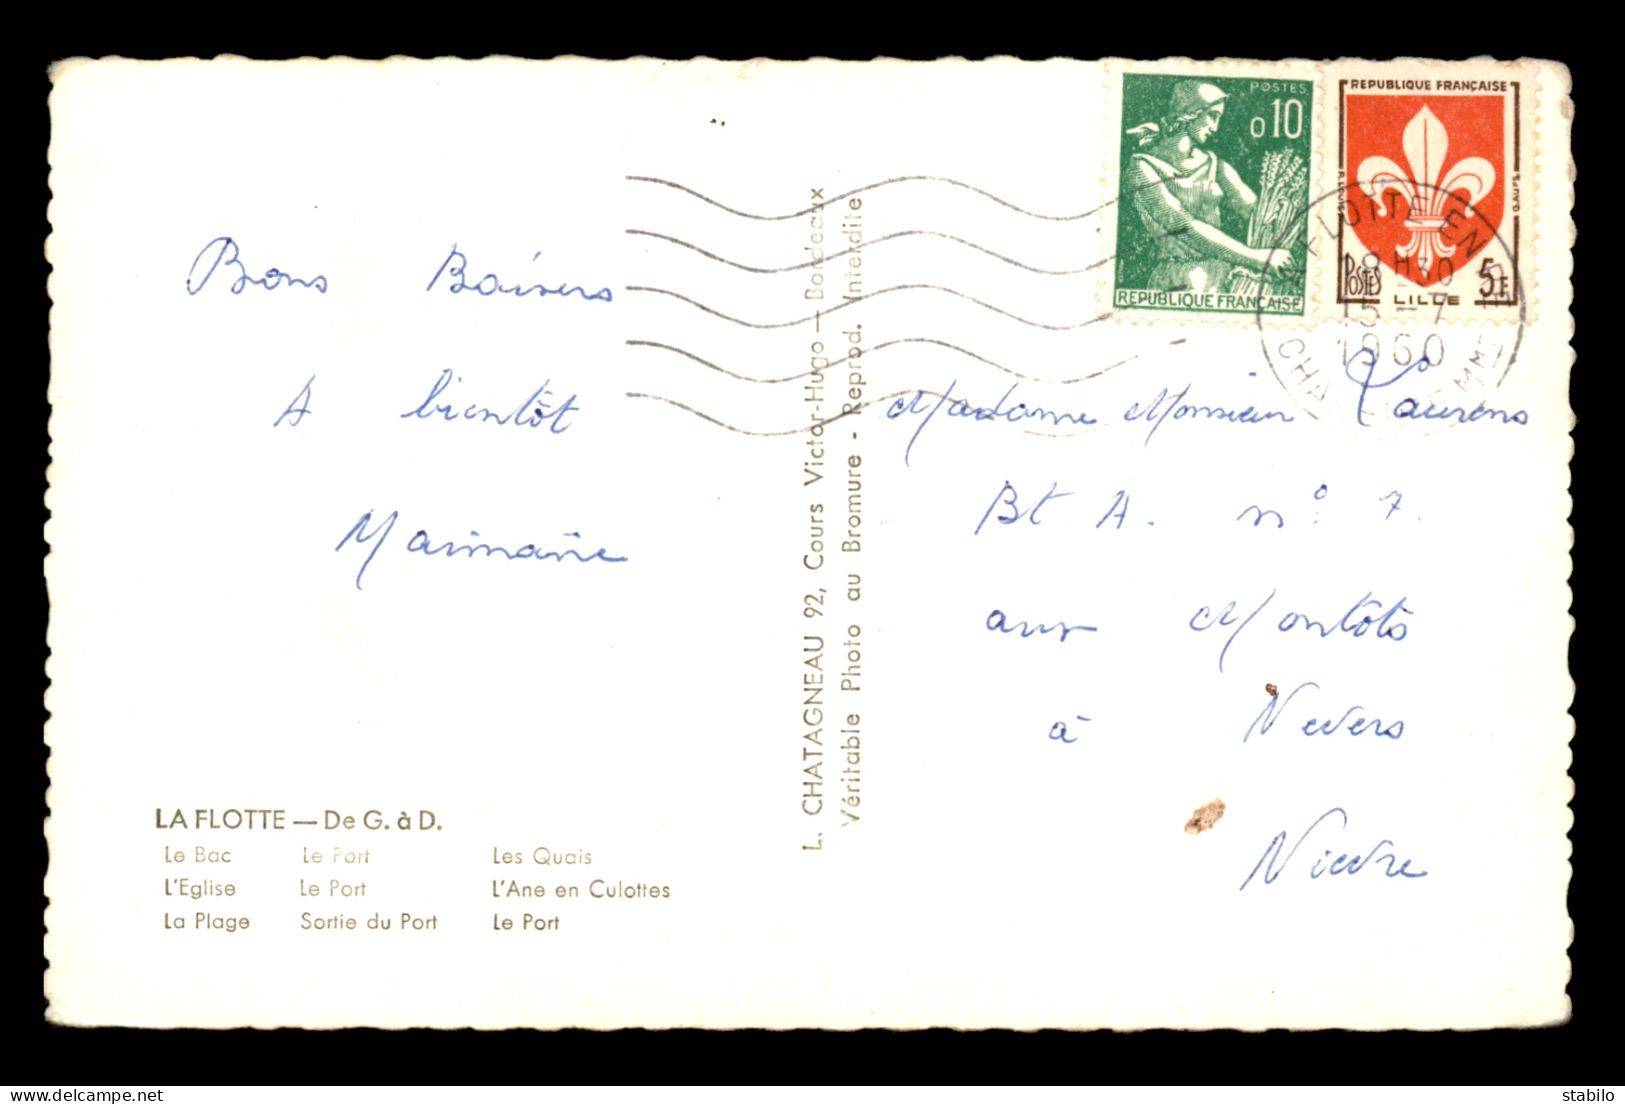 Bons Baisers
A bientôt
Marinaine
LA FLOTTE — De G. à D.
Le Bac Le Port Les Quais
L'Eglise Le Port L'Ane en Culottes
La Plage Sortie du Port Le Port
L. CHATAGNEAU 92, Cours Victor-Hugo — Bordeaux
Véritable Photo au Bromure - Reprod. Interdite
POSTES
0,10
REPUBLIQUE FRANÇAISE
REPUBLIQUE FRANÇAISE
POSTES
5F
LILLE
FLOTTE EN
18 H30
15 - 7
1960
Madame Monsieur Laurens
Bt A. n° 7.
aux Montôts
à Nevers
Nièvre
delcampe.net